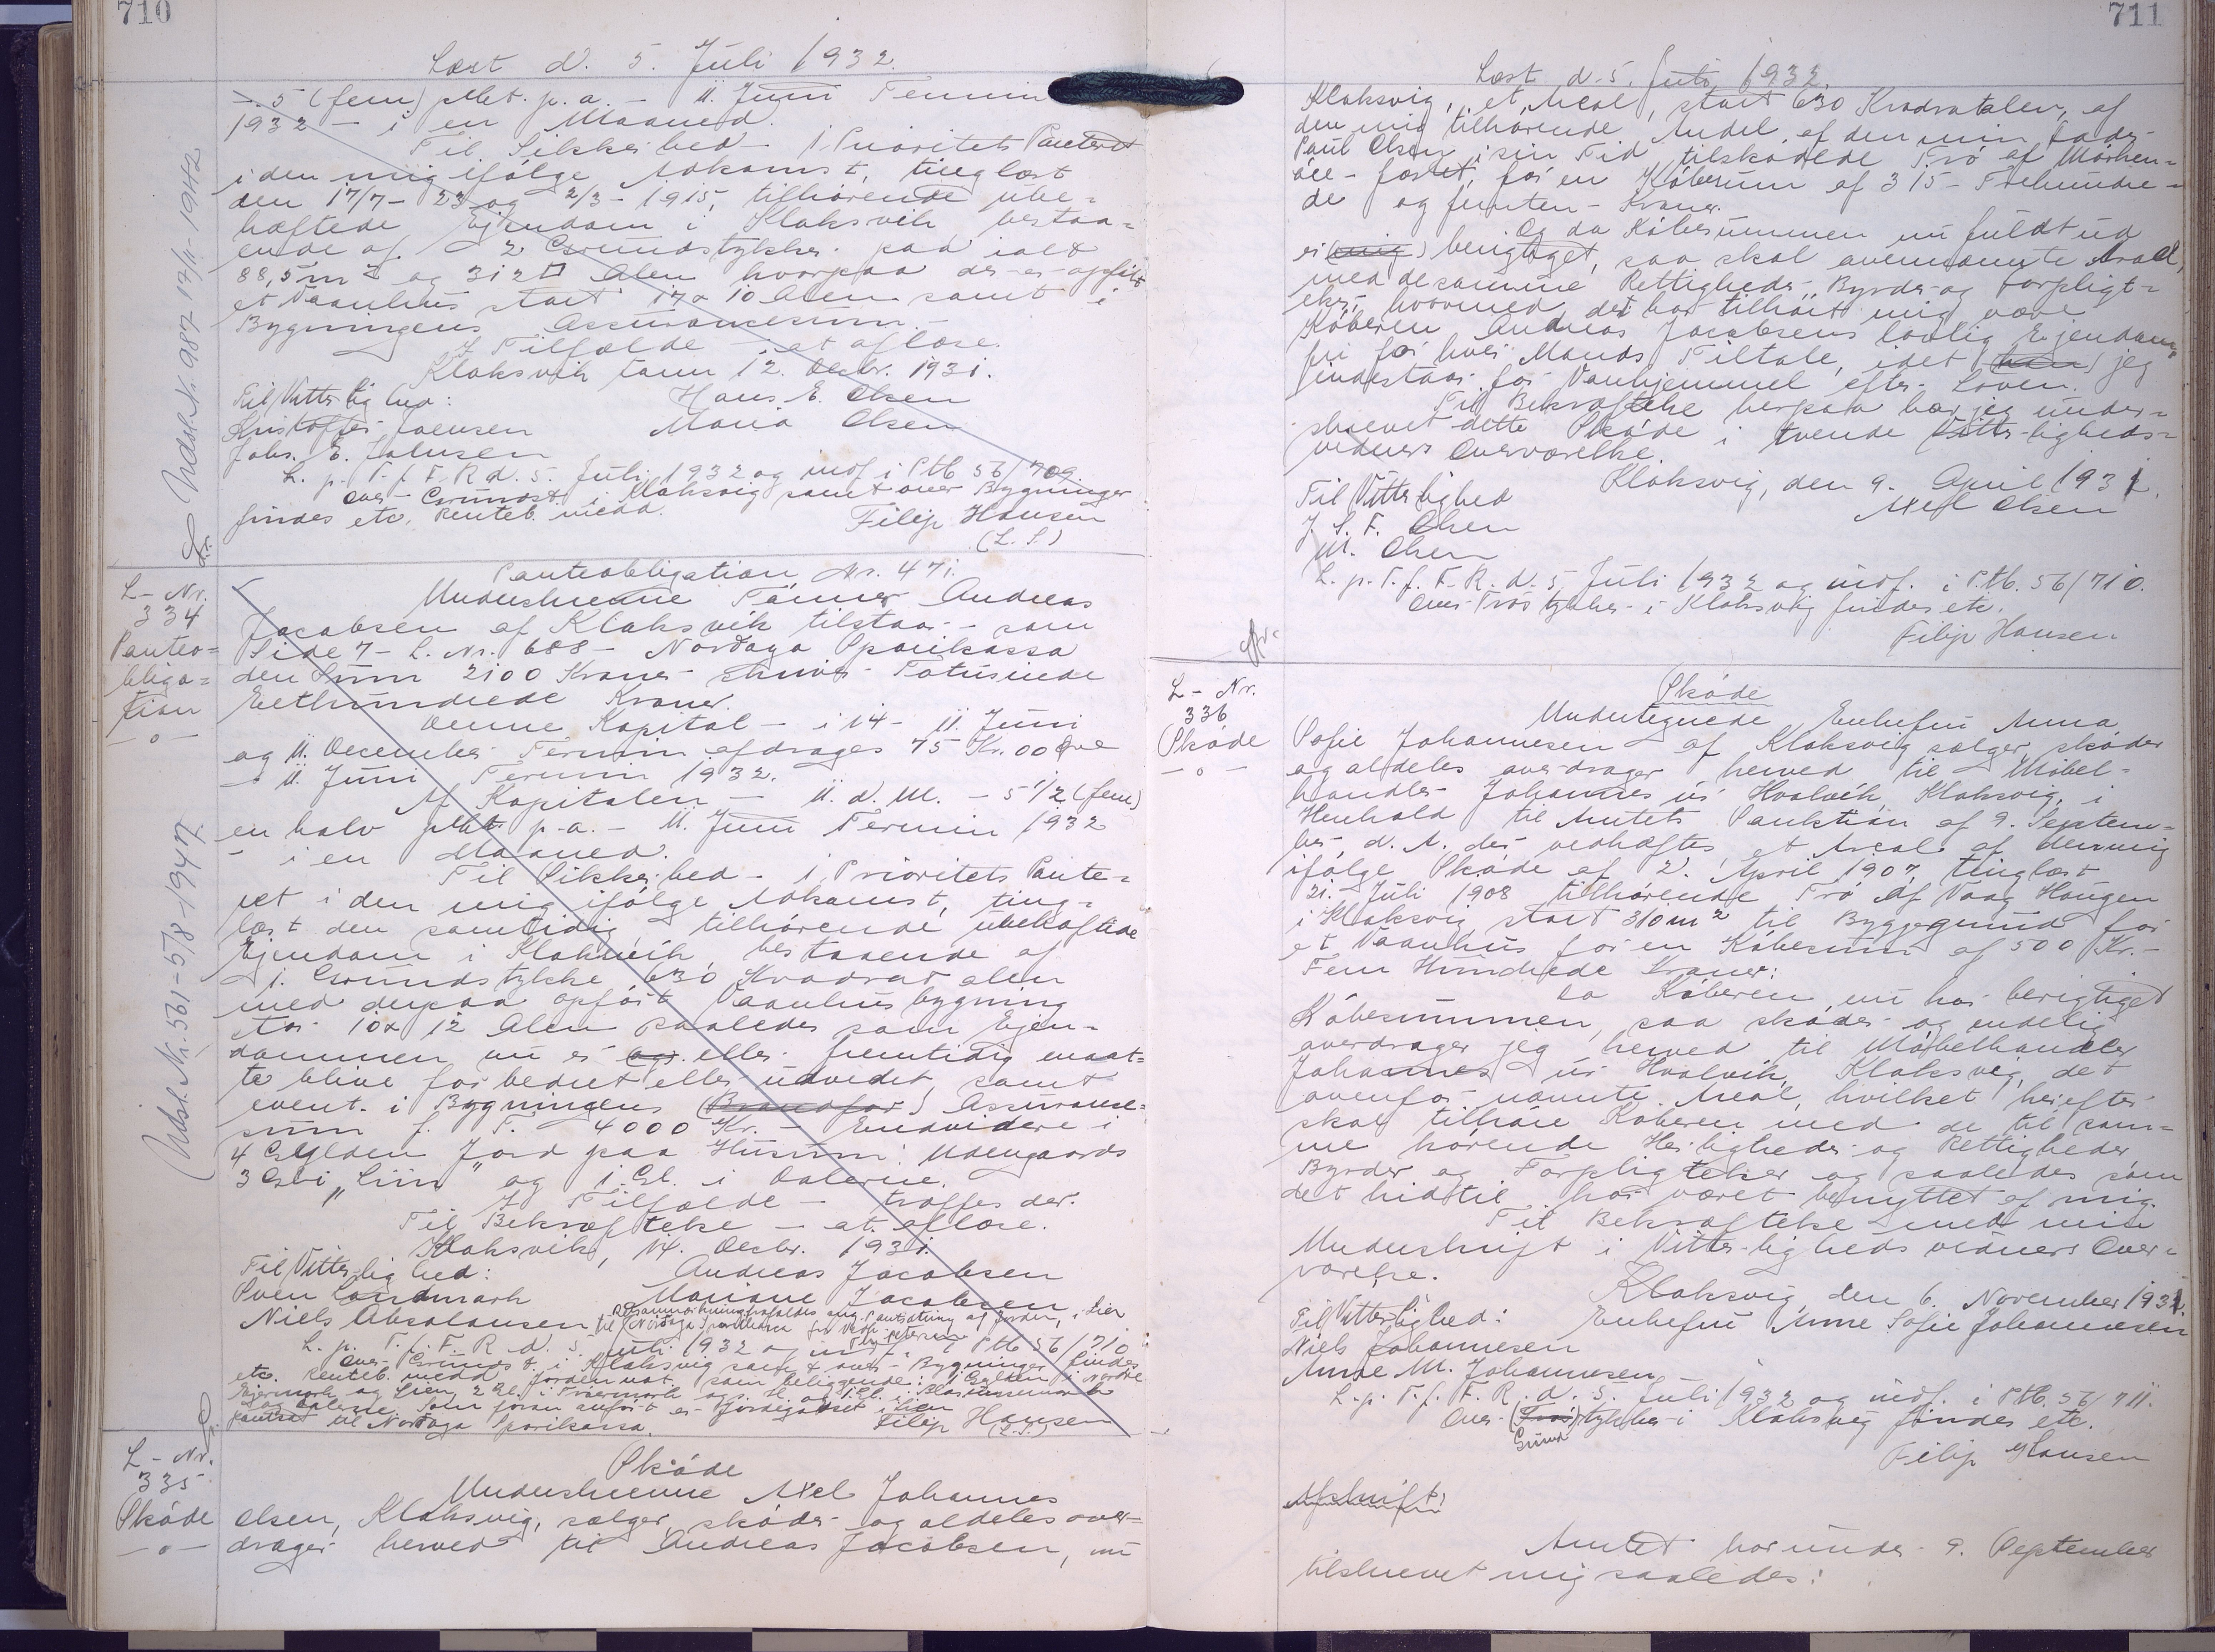 710
Læst d. 5. Juli 1932.
-. 5 (fem) pCt. p. a. - 11. Juni Termin
1932 - i en Maaned.
Til Sikkerhed - 1 Prioritets Panteret
i den mig ifølge Adkomst, tinglæst
den 17/7- 23 og 2/3- 1915, tilhørende ube-
hæftede Ejendom i Klaksvik bestaa-
ende af 2 Grundstykker paa ialt
88,5 m2 og 312 □ Alen hvorpaa der er opført
et Vaanhus stort 17 x 10 Alen samt i
Bygningens Assurancesum.-
I Tilfælde - at aflæse.
Klaksvik den 12. Decbr. 1931.
Til Vitterlighed: Hans E. Olsen
Kristoffer Joensen Maria Olsen
Johs. E. Joensen
L. p. T. f. F. R d. 5. Juli 1932 og indf. i Ptb 56/709
Over Grundst. i Klaksvig samt over Bygninger
findes etc. Renteb. medd. Filip Hansen
(L. S.)
Udsl. Nr. 987 17/11 1942
L-Nr.
334
Panteo-
bliga-
tion
-o-
Panteobligation Nr. 471.
Underskrevne Tømrer Andreas
Jacobsen af Klaksvik tilstaar - som
Side 7 - L. Nr. 688 - Nordoya Sparikassa
den Sum 2100 Kroner skriver Totusinde
Eethundrede Kroner.
Denne Kapital - i 14 - 11. Juni
og 11. December Termin afdrages 75 Kr. 00 Øre
- 11. Juni Termin 1932.
Af Kapitalen - 11. d. M. - 5 1/2 (fem)
en halv pCt. p. a. - 11. Juni Termin 1932
- i en Maaned.
Til Sikkerhed - 1. Prioritets Pante-
ret i den mig ifølge Adkomst, ting-
læst den samtidig tilhørende ubehæftede
Ejendom i Klaksvik bestaaende af
1. Grundstykke 630 Kvadrat alen
med derpaa opført Vaanhusbygning
stor 10 x 12 Alen saaledes som Ejen-
dommen nu er (og) eller fremtidig maat-
te blive forbedret eller udvidet samt
event. i Bygningens (Brandfor) Assurance-
sum f. T. 4000 Kr. - Endvidere i
4 Gylden Jord paa Husum: Udengaards
3 Gl. i "Lün" og 1 Gl. i Dalerne.
I Tilfælde - træffes der.
Til Bekræftelse - at aflæse.
Klaksvik, 14. Decbr. 1931.
Til Vitterlighed: Andreas Jacobsen
Sven Landmark Mariane Jacobsen
Niels Absalonsen
L. p. T. f. F. R d. 5. Juli 1932 og indf. i Ptb 56/710
Over Grundst. i Klaksvig samt over Bygninger findes
etc. Renteb. medd. Jorden
pantsat til Nordoya Sparikassa. Filip Hansen
(L. S.)
Udsl. Nr. 561 - 5/8 - 1947.
L-Nr.
335
Skøde
-o-
Skøde
Underskrevne Axel Johannes
Olsen, Klaksvig, sælger, skøder og aldeles over-
drager herved til Andreas Jacobsen, nu
711
Læst d. 5. Juli 1932
Klaksvig, et Areal, stort 630 Kvadratalen, af
den mig tilhørende Andel af den min Fader
Paul Olsen i sin Tid tilskødede Trø af Mørken-
óre-fæstet, for en Købesum af 315 - Trehundre-
de og femten - Kroner.
Og da Købesummen nu fuldt ud
er (mig) berigtiget, saa skal ovennævnte Areal,
med de samme Rettigheder, Byrder og Forpligt-
elser, hvormed det har tilhørt mig være
Køberen Andreas Jacobsens lovlig Ejendom,
fri for hver Mands Tiltale, idet (han) jeg
indestaar for Vanhjemmel efter Loven.
Til Bekræftelse herpaa har jeg under-
skrevet dette Skøde i tvende Vitterligheds-
vidners Overværelse.
Klaksvig, den 9. April 1931.
Til Vitterlighed Axel Olsen
J. S. F. Olsen
M. Olsen
L. p. T. f. F. R. d. 5. Juli 1932 og indf. i Ptb. 56/710.
Over Trøstykker i Klaksvig findes etc.
Filip Hansen
L-Nr.
336
Skøde
-o-
Skøde
Undertegnede Enkefru Anna
Sofie Johannesen af Klaksvig sælger, skøder
og aldeles overdrager herved til Møbel-
handler Johannes úr Hvalvik, Klaksvig, i
Henhold til Amtets Sanktion af 9. Septem-
ber d. A. der vedhæftes, et Areal af den mig
ifølge Skøde af 2. April 1907, tinglæst
21. Juli 1908 tilhørende Trø af Vaag Haugen
i Klaksvig stort 310 m2 til Byggegrund for
et Vaanhus for en Købesum af 500 Kr.-
Fem Hundrede Kroner:
Da Køberen nu har berigtiget
Købesummen, saa skøder og endelig
overdrager jeg herved til Møbelhandler
Johannes úr Hvalvik, Klaksvig, det
ovenfor nævnte Areal, hvilket herefter
skal tilhøre Køberen med de til sam-
me hørende Herligheder og Rettigheder
Byrder og Forpligtelser og saaledes som
det hidtil har været benyttet af mig.
Til Bekræftelse med min
Underskrift i Vitterlighedsvidners Over-
værelse.
Klaksvig den 6. November 1931.
Til Vitterlighed: Enkefru Anne Sofie Johannesen
Niels Johannesen
Anne M. Johannesen
L. p. T. f. F. R. d. 5. Juli 1932 og indf. i Ptb. 56/711.
Over (Trø) stykker i Klaksvig findes etc.
Grund
Filip Hansen
Afskrift:
Amtet har under 9. September
tilskrevet mig saaledes: